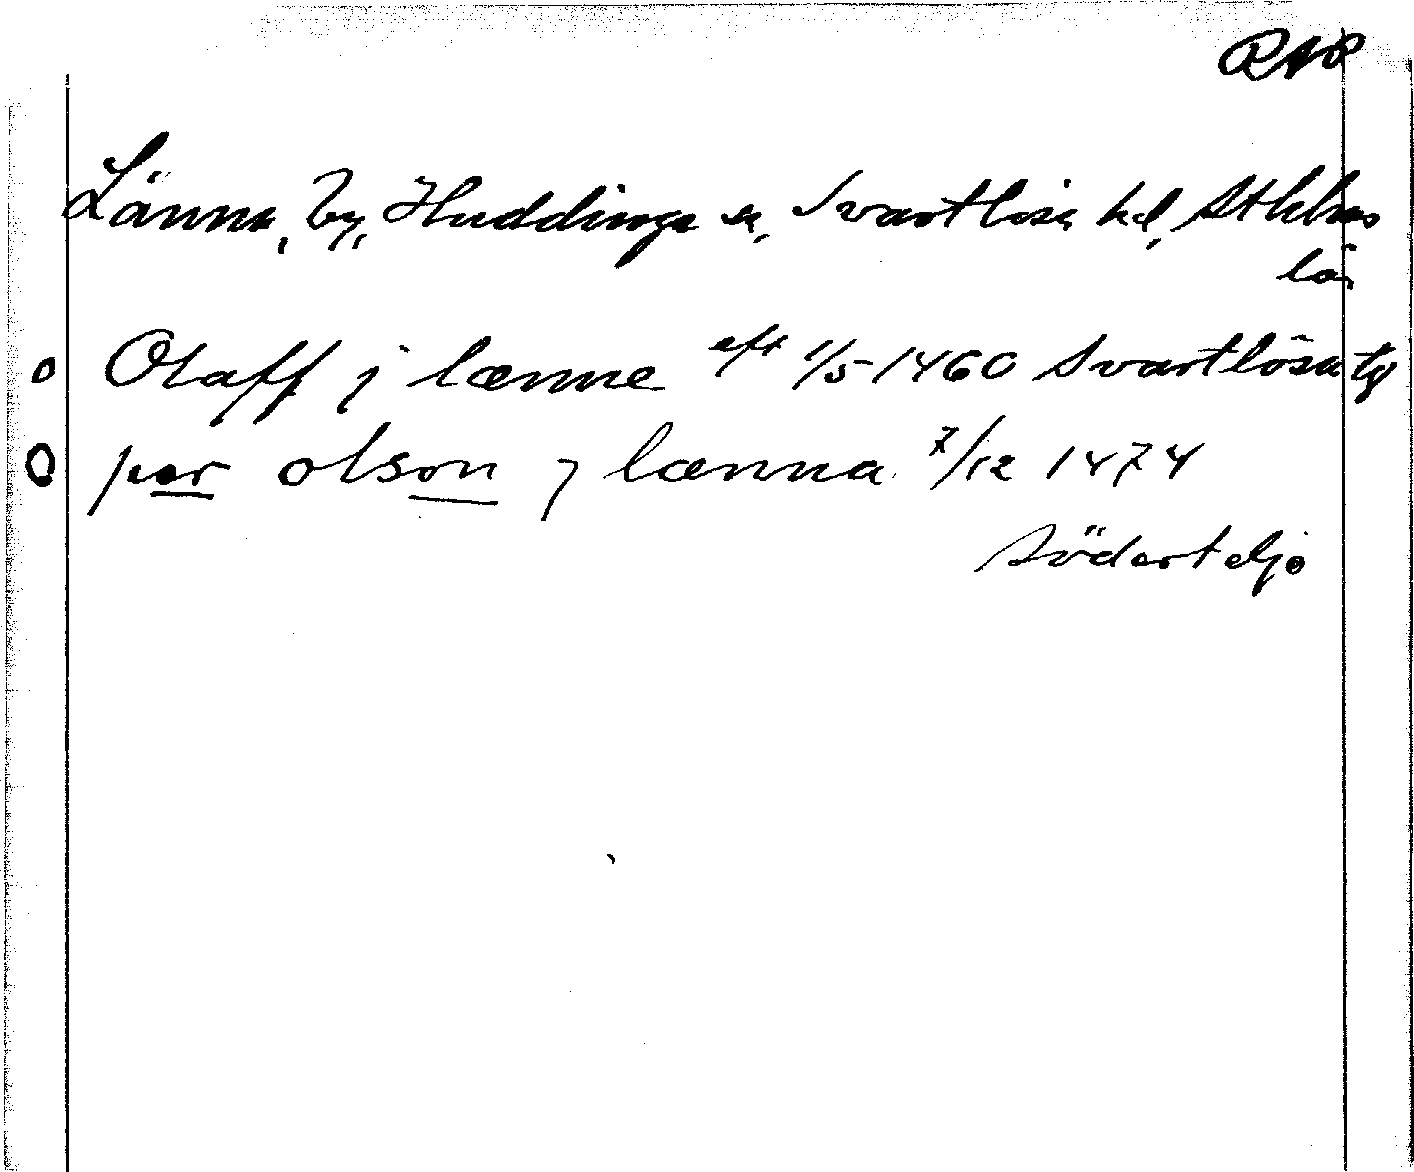 RAP
Länna, by, Huddinge sn, Svartlösa hd, Sthlms
län
O Olaff j lænne eft 1/5 1460 Svartlösa tg
O per olson j lænna 7/12 1474
Södertelje